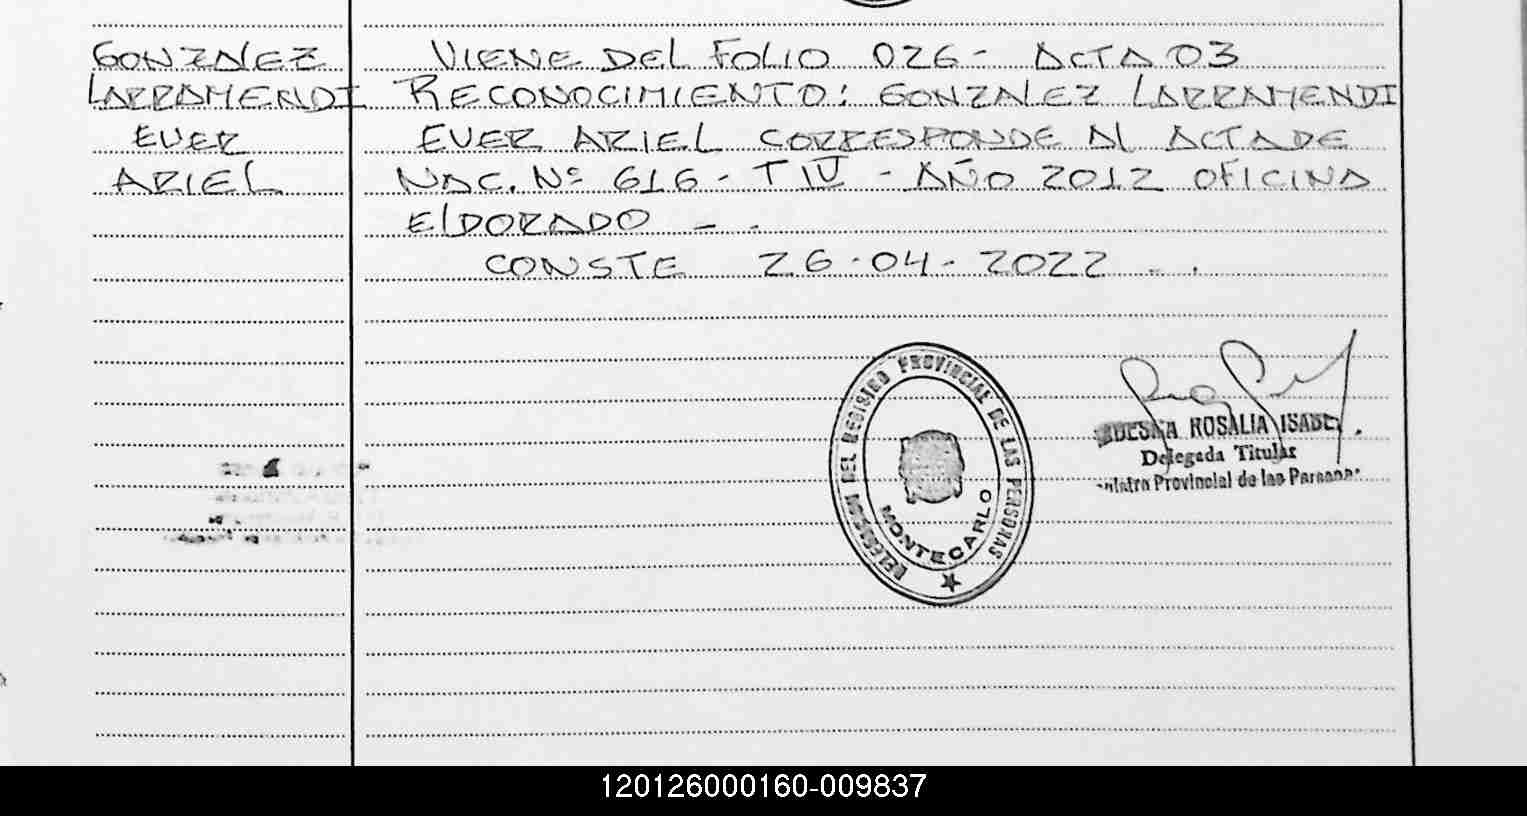 GONZALEZ
LARRAMENDI
EVER
ARIEL
VIENE DEL FOLIO 026 - ACTA 03
RECONOCIMIENTO: GONZALEZ LARRAMENDI
EVER ARIEL CORRESPONDE AL ACTA DE
NAC. Nº 616 - T IV - AÑO 2012 OFICINA
ELDORADO - .
CONSTE 26-04-2022 - .
DEL REGISTRO PROVINCIAL DE LAS PERSONAS
MONTECARLO
ROSALIA ISABEL
Delegada Titular
Provincial de las Personas
120126000160-009837